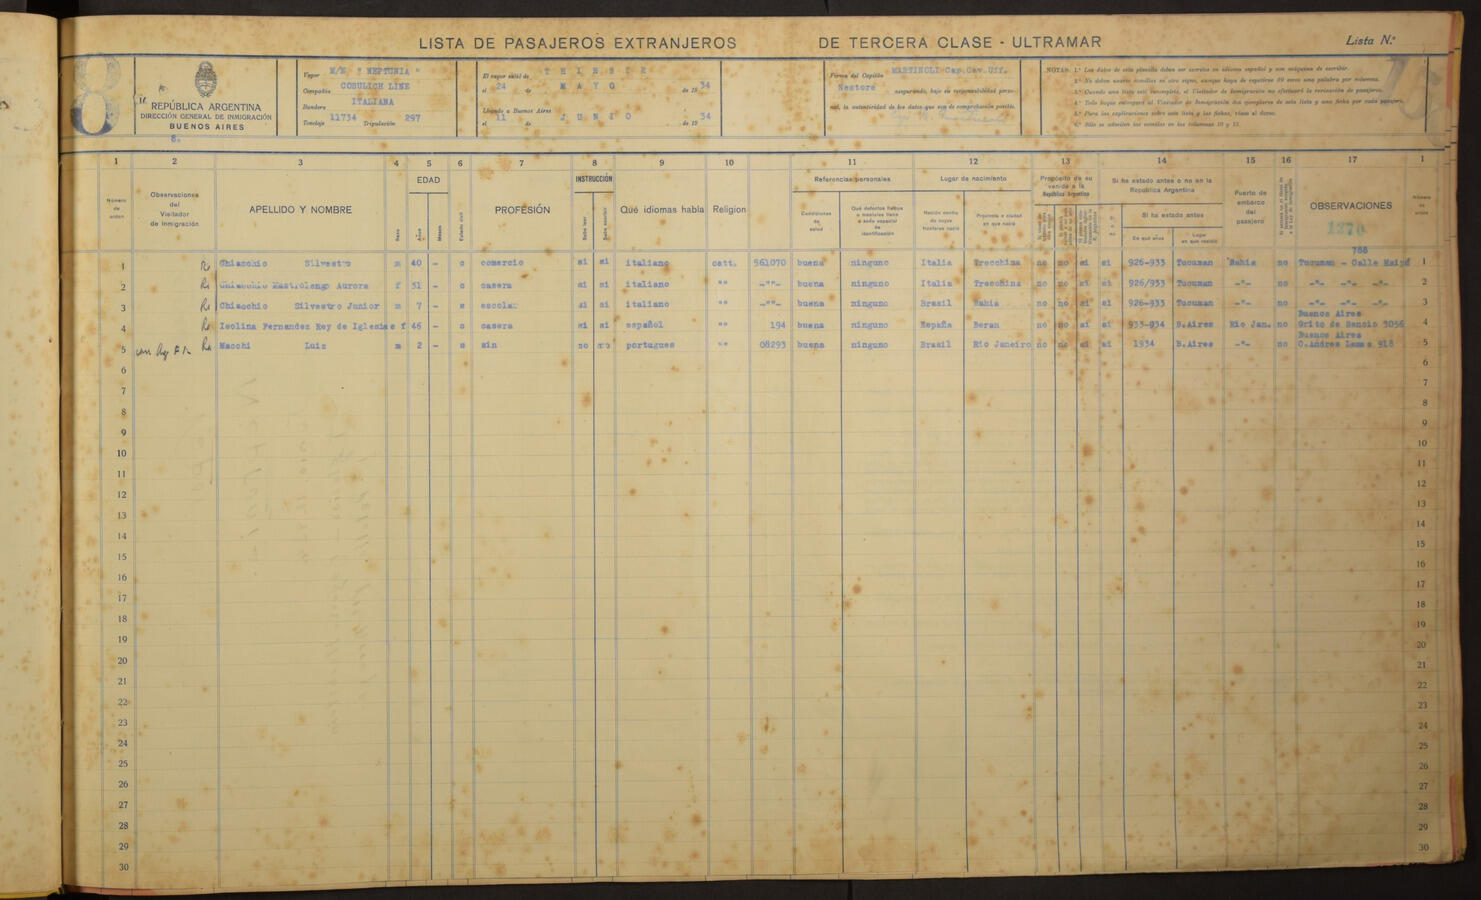 LISTA DE PASAJEROS EXTRANJEROS DE TERCERA CLASE - ULTRAMAR Lista N.º
REPÚBLICA ARGENTINA
DIRECCIÓN GENERAL DE INMIGRACIÓN
BUENOS AIRES
8.
Vapor M/N " NEPTUNIA "
Compañía COSULICH LINE
Bandera ITALIANA
Tonelaje 11734 Tripulación 297
El vapor salió de TRIESTE
el 24 de MAYO de 1934
Llegado a Buenos Aires
el 11 de JUNIO de 1934
Firma del Capitán MARTINOLI Cap.Cav.Uff.
Nestore asegurando, bajo su responsabilidad perso-
nal, la autenticidad de los datos que son de comprobación posible.
NOTAS: 1.º Los datos de esta planilla deben ser escritos en idioma español y con máquina de escribir.
1 2 3 4 5 6 7 8 9 10 11 12 13 14 15 16 17 1
Número de orden
Observaciones del Visitador de Inmigración
APELLIDO Y NOMBRE
Sexo
EDAD
Años
Meses
Estado civil
PROFESIÓN
INSTRUCCIÓN
Sabe leer
Sabe escribir
Qué idiomas habla
Religion
Referencias personales
Condiciones de salud
Qué defectos físicos o mentales tiene o seña especial de identificación
Lugar de nacimiento
Nación dentro de cuyas fronteras nació
Provincia o ciudad en que nació
Propósito de su venida a la República Argentina
Si ha estado antes o no en la República Argentina
Si ha estado antes
En qué años
Lugar en que residió
Puerto de embarco del pasajero
OBSERVACIONES
1270
Número de orden
788
1 Chiacchio Silvestro m 40 - c comercio si si italiano catt. 561070 buena ninguno Italia Trecchina no no si si 926-933 Tucuman Bahia no Tucuman - Calle Maipú 1
2 Chiacchio Mastrolengo Aurora f 31 - c casera si si italiano "" -""- buena ninguno Italia Trecchina no no si si 926/933 Tucuman -"- no -"- -"- -"- 2
3 Chiacchio Silvestro Junior m 7 - s escolar si si italiano "" -""- buena ninguno Brasil Bahia no no si si 926-933 Tucuman -"- no -"- -"- -"- 3
Buenos Aires
4 Isolina Fernandez Rey de Iglesias f 46 - c casera si si español "" 194 buena ninguno España Beran no no si si 933-934 B.Aires Rio Jan. no Grito de Bencio 3056 4
Buenos Aires
5 Macchi Luiz m 2 - s sin no no portugues "" 08293 buena ninguno Brasil Rio Janeiro no no si si 1934 B.Aires -"- no C.Andres Lamas 918 5
6 6
7 7
8 8
9 9
10 10
11 11
12 12
13 13
14 14
15 15
16 16
17 17
18 18
19 19
20 20
21 21
22 22
23 23
24 24
25 25
26 26
27 27
28 28
29 29
30 30